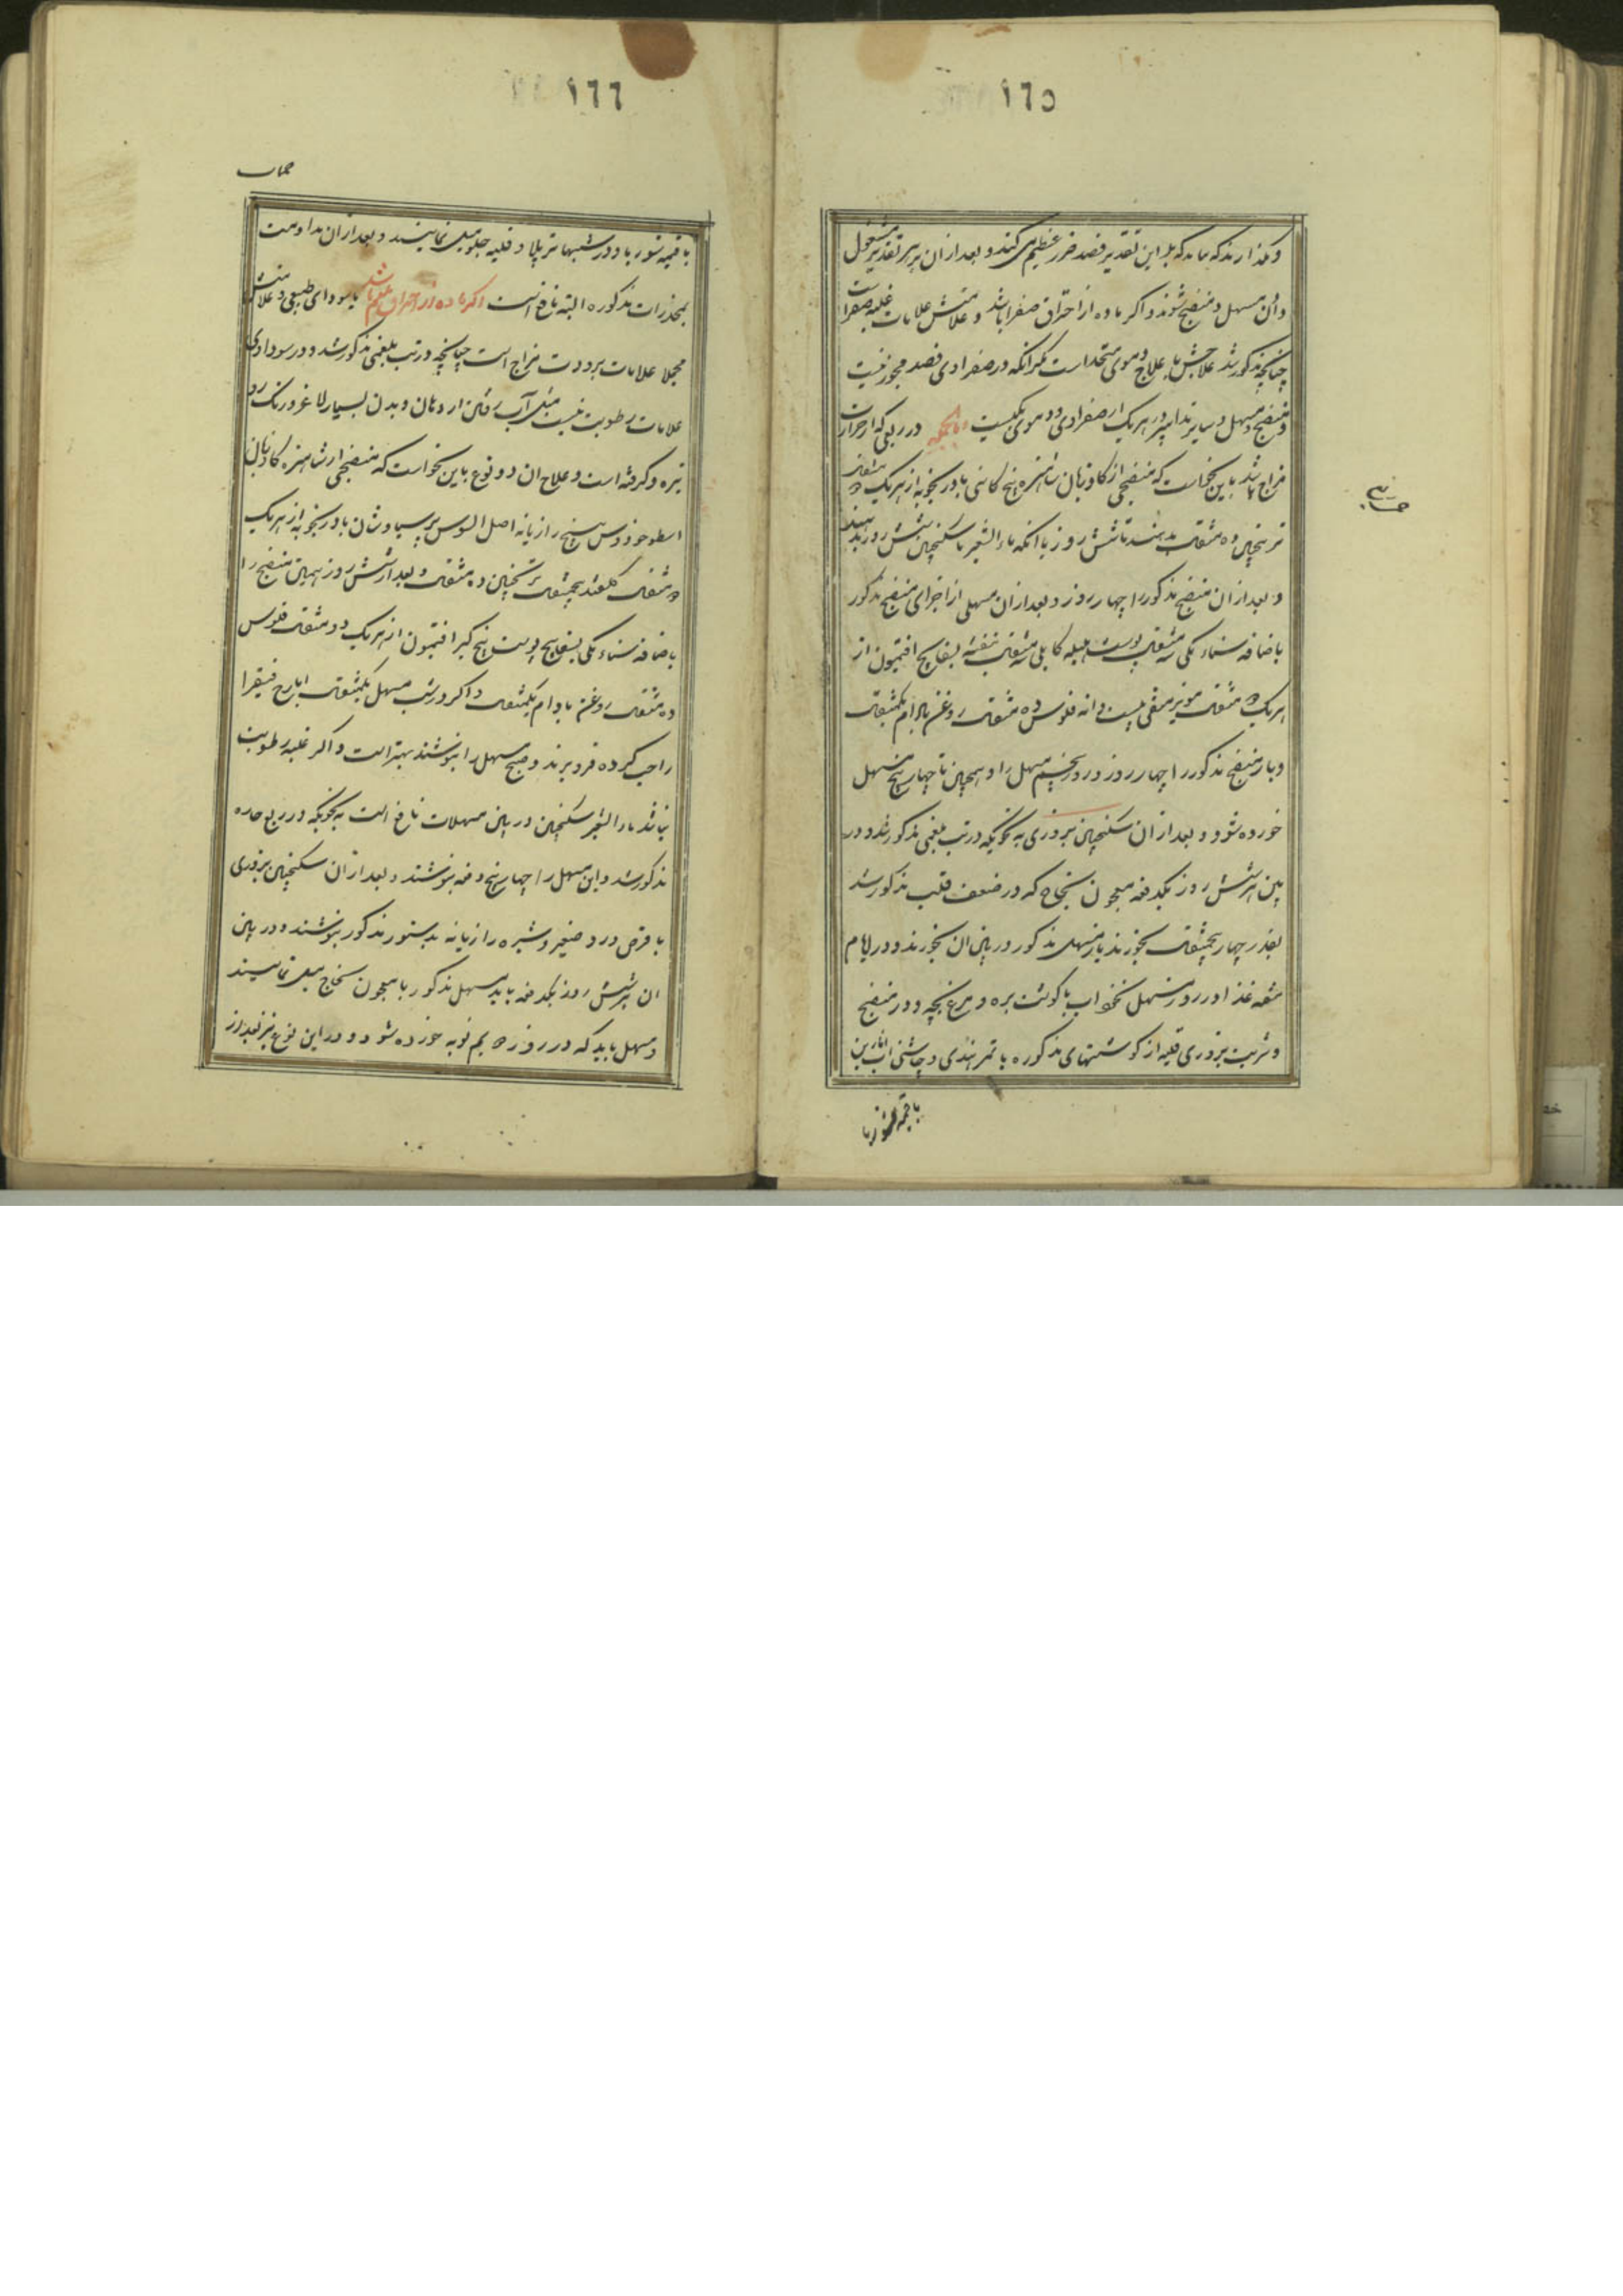 ١٦٥
و نگذارند که بماند که بلا این تقدیر فصد ضرر عظیم می کند و بعد از آن بر هر تقدیر مشغول
مسهل و منضج شوند و اگر ماده از احتراق صفرا باشد و علامتش علامات غلبه صفراست
چنانچه مذکور شد علاجش با علاج دموی متحد است مگر آنکه در صفراوی فصد مجوز نیست
و منضج و مسهل و سایر تدابیر در هر یک از صفراوی و دموی یکیست و بالجمله در ربعی که از حرارت
مزاج باشد باین نحو است که منضجی از گاوزبان شاهتره بیخ کاسنی بادرنجبویه از هر یک مثقال
ترنجبین ده مثقال بدهند تا شش روز با آنکه ماء الشعیر با سکنجبین شش روز بدهند
و بعد از آن منضج مذکور را چهار روز و بعد از آن مسهلی از اجزای منضج مذکور
باضافه سناء مکی سه مثقال پوست هلیله کابلی سه مثقال بنفشه بسفایج افتیمون از
هر یک مثقال مویز منقی بیست دانه فلوس ده مثقال روغن بادام یکمثقال
و باز منضج مذکور را چهار روز و روز پنجم مسهل را و همچنین تا چهار پنج مسهل
خورده شود و بعد از آن سکنجبین بزوری به نحویکه در تب بلغمی مذکور شد و در
بین هر شش روز یکدفعه معجون نجاح که در ضعف قلب مذکور شد
بقدر چهار پنجمثقال بخورند یا مسهل مذکور در بین آن بخورند و در ایام
غذا در روز مسهل نخوداب با گوشت بره و مرغ بچه و در منضج
و شربت بزوری قلیه از گوشتهای مذکوره با تمر هندی و چاشنی انارین
با قیمه شوربا
حمیات
١٦٦
حمیات
با قیمه شوربا و در شبها تر پلا و قلیه چلو میل نمایند و بعد از آن مداومت
بمخدرات مذکوره البته نافع است اگر ماده از احتراق بلغم باشد یا سودای طبیعی و علامتش
مجملا علامات برودت مزاج است چنانچه در تب بلغمی مذکور شد و در سوداوی
علامات رطوبت نیست مثل آب رفتن از دهان و بدن بسیار لاغر و رنگ رو
تیره و گرفته است و علاج آن دو نوع باین نحو است که منضجی از شاهتره گاوزبان
اسطوخودوس بیخ رازیانه اصل السوس پرسیاوشان بادرنجبویه از هر یک
مثقال گلقند پنجمثقال ترنجبین ده مثقال و بعد از شش روز همین منضج را
باضافه سناء مکی بسفایج پوست بیخ کبر افتیمون از هر یک دو مثقال فلوس
ده مثقال روغن بادام یکمثقال و اگر در شب مسهل یکمثقال ایارج فیقرا
را حب کرده فرو برند و صبح مسهل را بنوشند بهتر است و اگر غلبه رطوبت
نباشد ماء الشعیر سکنجبین در بین مسهلات نافع است به نحویکه در ربع حاره
مذکور شد و این مسهل را چهار پنج دفعه بنوشند و بعد از آن سکنجبین بزوری
با قرص ورد صغیر و شیره رازیانه بدستور مذکور بنوشند و در بین
آن هر شش روز یکدفعه باید مسهل مذکور با معجون نجاح میل نمایند
و مسهل باید که در روز نوبه خورده شود و در این نوع نیز بعد از